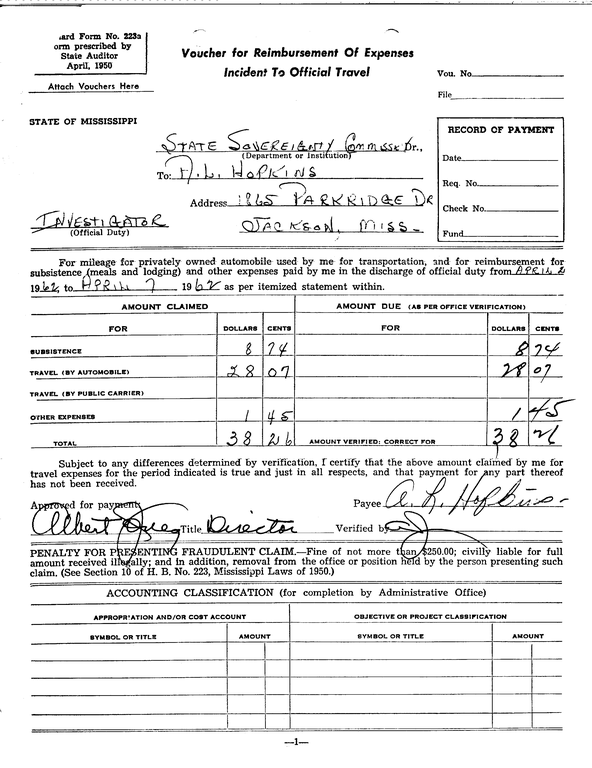 ard Form No. 223a
orm prescribed by
State Auditor
April, 1950
Attach Vouchers Here
Voucher for Reimbursement Of Expenses
Incident To Official Travel
Vou. No.
File
STATE OF MISSISSIPPI
STATE SOVEREIGNTY Commission Dr.,
(Department or Institution)
To: A. L. HOPKINS
Address 1865 PARKRIDGE DR
INVESTIGATOR
(Official Duty)
JACKSON, MISS-
RECORD OF PAYMENT
Date
Req. No.
Check No.
Fund
For mileage for privately owned automobile used by me for transportation, and for reimbursement for
subsistence (meals and lodging) and other expenses paid by me in the discharge of official duty from APRIL
1962, to APRIL 7 1962 as per itemized statement within.
AMOUNT CLAIMED AMOUNT DUE (AS PER OFFICE VERIFICATION)
FOR DOLLARS CENTS FOR DOLLARS CENTS
SUBSISTENCE 8 74 8 74
TRAVEL (BY AUTOMOBILE) 28 07 28 07
TRAVEL (BY PUBLIC CARRIER)
OTHER EXPENSES 1 45 1 45
TOTAL 38 26 AMOUNT VERIFIED: CORRECT FOR 38 26
Subject to any differences determined by verification, I certify that the above amount claimed by me for
travel expenses for the period indicated is true and just in all respects, and that payment for any part thereof
has not been received.
Approved for payment: Payee A. L. Hopkins-
Albert Title Director Verified by
PENALTY FOR PRESENTING FRAUDULENT CLAIM.—Fine of not more than $250.00; civilly liable for full
amount received illegally; and in addition, removal from the office or position held by the person presenting such
claim. (See Section 10 of H. B. No. 223, Mississippi Laws of 1950.)
ACCOUNTING CLASSIFICATION (for completion by Administrative Office)
APPROPRIATION AND/OR COST ACCOUNT OBJECTIVE OR PROJECT CLASSIFICATION
SYMBOL OR TITLE AMOUNT SYMBOL OR TITLE AMOUNT
—1—